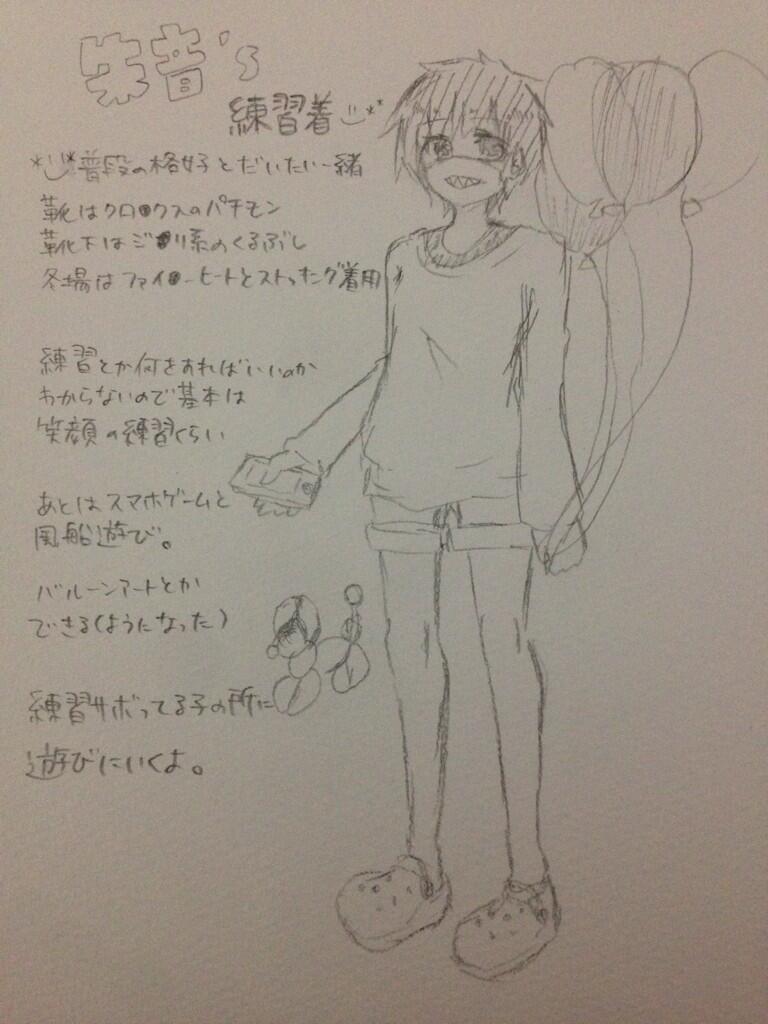 朱音's
練習着
普段の格好とだいたい一緒
靴はクロ●クスのパチモン
靴下はジ●リ系のくるぶし
冬場はファイ●ーヒートとストッキング着用
練習とか何をすればいいのか
わからないので基本は
笑顔の練習くらい
あとはスマホゲームと
風船遊び。
バルーンアートとか
できる(ようになった)
練習サボってる子の所に
遊びにいくよ。